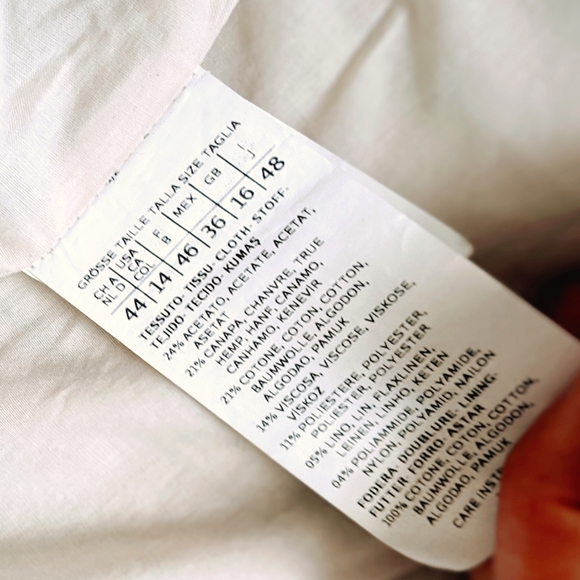 GRÖSSE TAILLE TALLA SIZE TAGLIA
CH A USA F MEX GB I
NL D CA B
CO.
44 14 46 36 16 48
TESSUTO- TISSU- CLOTH- STOFF-
TEJIDO- TECIDO- KUMAŞ
24% ACETATO, ACETATE, ACETAT,
ASETAT
21% CANAPA, CHANVRE, TRUE
HEMP, HANF, CANAMO,
CANHAMO, KENEVIR
21% COTONE, COTON, COTTON,
BAUMWOLLE, ALGODON,
ALGODAO, PAMUK
14% VISCOSA, VISCOSE, VISKOSE,
VISKOZ
11% POLIESTERE, POLYESTER,
POLIESTER, POLYESTER
05% LINO, LIN, FLAX/LINEN,
LEINEN, LINHO, KETEN
04% POLIAMMIDE, POLYAMIDE,
NYLON, POLYAMID, NAILON
FODERA- DOUBLURE- LINING-
FUTTER- FORRO- ASTAR
100% COTONE, COTON, COTTON,
BAUMWOLLE, ALGODON,
ALGODAO, PAMUK
CARE INST